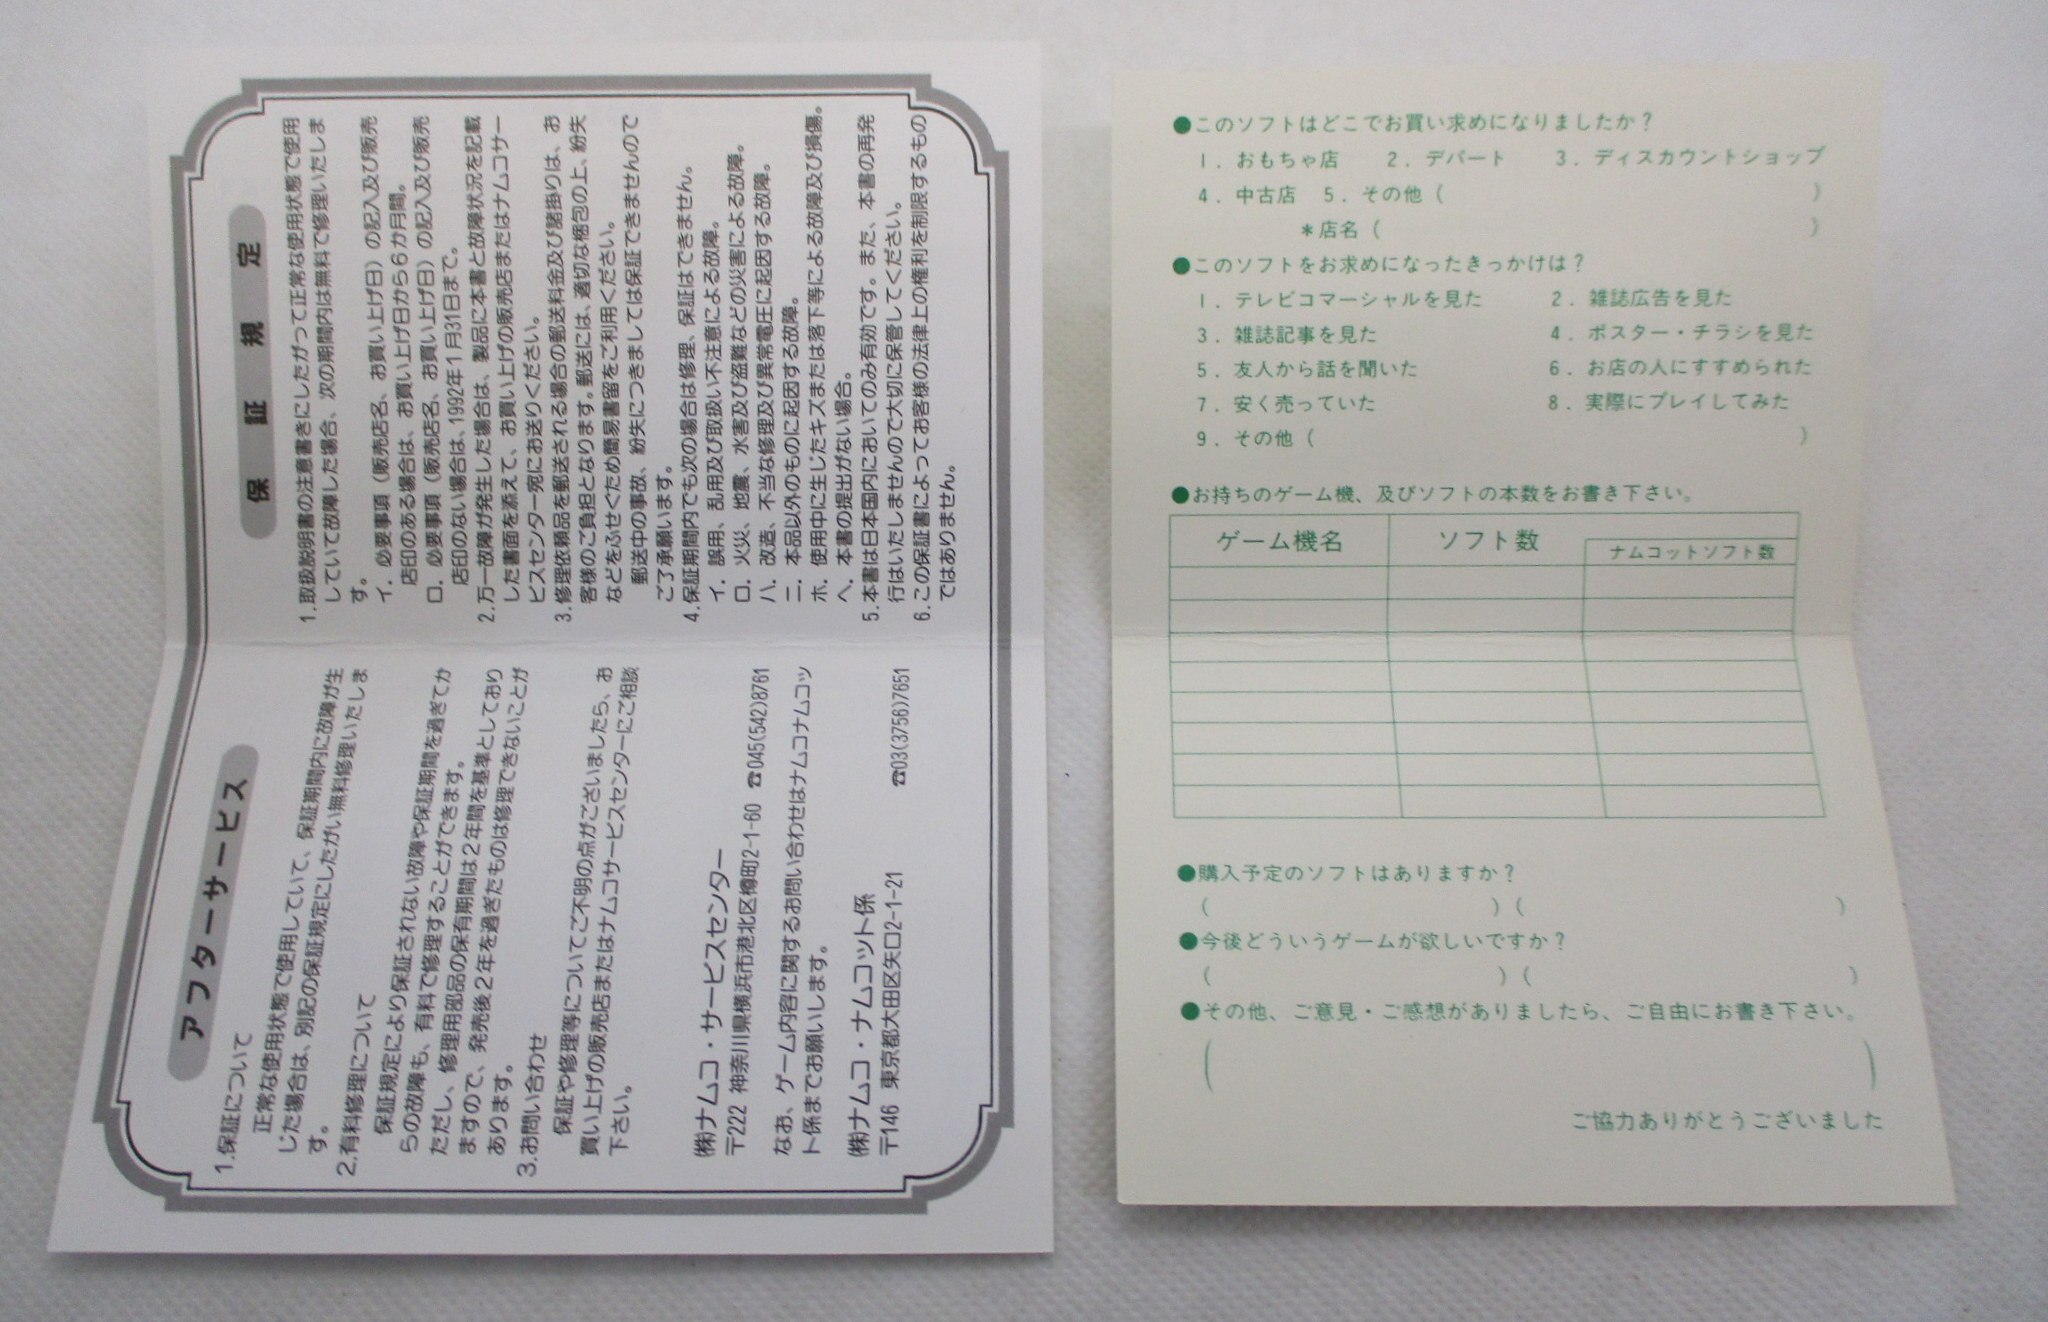 保証規定
1.取扱説明書の注意書きにしたがって正常な使用状態で使用
していて故障した場合、次の期間内は無料で修理いたしま
す。
イ．必要事項（販売店名、お買い上げ日）の記入及び販売
店印のある場合は、お買い上げ日から6か月間。
ロ．必要事項（販売店名、お買い上げ日）の記入及び販売
店印のない場合は、1992年1月31日まで。
2.万一故障が発生した場合は、製品に本書と故障状況を記載
した書面を添えて、お買い上げの販売店またはナムコサー
ビスセンター宛にお送りください。
3.修理依頼品を郵送される場合の郵送料金及び諸掛りは、お
客様のご負担となります。郵送には、適切な梱包の上、紛失
などをふせぐため簡易書留をご利用ください。
郵送中の事故、紛失につきましては保証できませんので
ご了承願います。
4.保証期間内でも次の場合は修理、保証はできません。
イ．誤用、乱用及び取扱い不注意による故障。
ロ．火災、地震、水害及び盗難などの災害による故障。
ハ．改造、不当な修理及び異常電圧に起因する故障。
ニ．本品以外のものに起因する故障。
ホ．使用中に生じたキズまたは落下等による故障及び損傷。
ヘ．本書の提出がない場合。
5.本書は日本国内においてのみ有効です。また、本書の再発
行はいたしませんので大切に保管してください。
6.この保証書によってお客様の法律上の権利を制限するもの
ではありません。
アフターサービス
1.保証について
正常な使用状態で使用していて、保証期間内に故障が生
じた場合は、別記の保証規定にしたがい無料修理いたしま
す。
2.有料修理について
保証規定により保証されない故障や保証期間を過ぎてか
らの故障も、有料で修理することができます。
ただし、修理用部品の保有期間は2年間を基準としており
ますので、発売後2年を過ぎたものは修理できないことが
あります。
3.お問い合わせ
保証や修理等についてご不明の点がございましたら、お
買い上げの販売店またはナムコサービスセンターにご相談
下さい。
㈱ナムコ・サービスセンター
〒222 神奈川県横浜市港北区樽町2-1-60 ☎045(542)8761
なお、ゲーム内容に関するお問い合わせはナムコナムコッ
ト係までお願いします。
㈱ナムコ・ナムコット係
〒146 東京都大田区矢口2-1-21 ☎03(3756)7651
●このソフトはどこでお買い求めになりましたか？
1．おもちゃ店 2．デパート 3．ディスカウントショップ
4．中古店 5．その他（ ）
＊店名（ ）
●このソフトをお求めになったきっかけは？
1．テレビコマーシャルを見た 2．雑誌広告を見た
3．雑誌記事を見た 4．ポスター・チラシを見た
5．友人から話を聞いた 6．お店の人にすすめられた
7．安く売っていた 8．実際にプレイしてみた
9．その他（ ）
●お持ちのゲーム機、及びソフトの本数をお書き下さい。
ゲーム機名 ソフト数 ナムコットソフト数
●購入予定のソフトはありますか？
（ ）（ ）
●今後どういうゲームが欲しいですか？
（ ）（ ）
●その他、ご意見・ご感想がありましたら、ご自由にお書き下さい。
（ ）
ご協力ありがとうございました